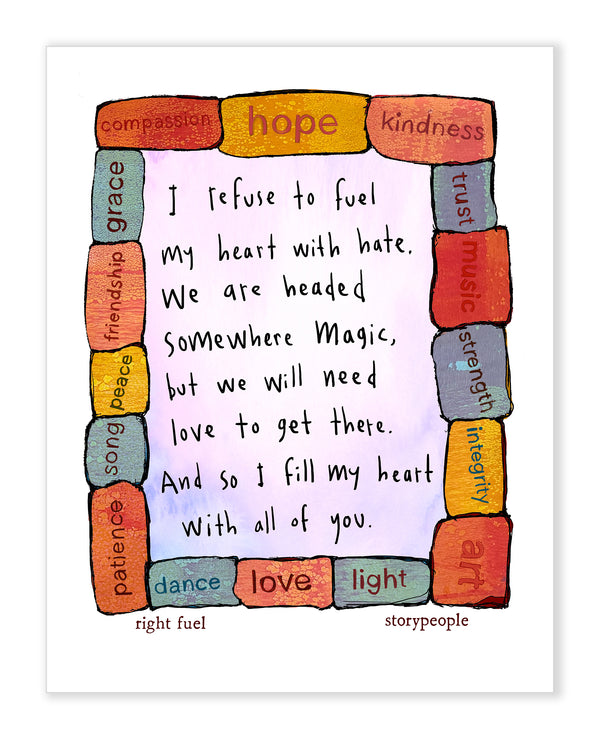 compassion hope kindness
grace
friendship
peace
song
patience
I refuse to fuel
my heart with hate.
We are headed
somewhere magic,
but we will need
love to get there.
And so I fill my heart
with all of you.
trust
music
strength
integrity
art
dance love light
right fuel
storypeople